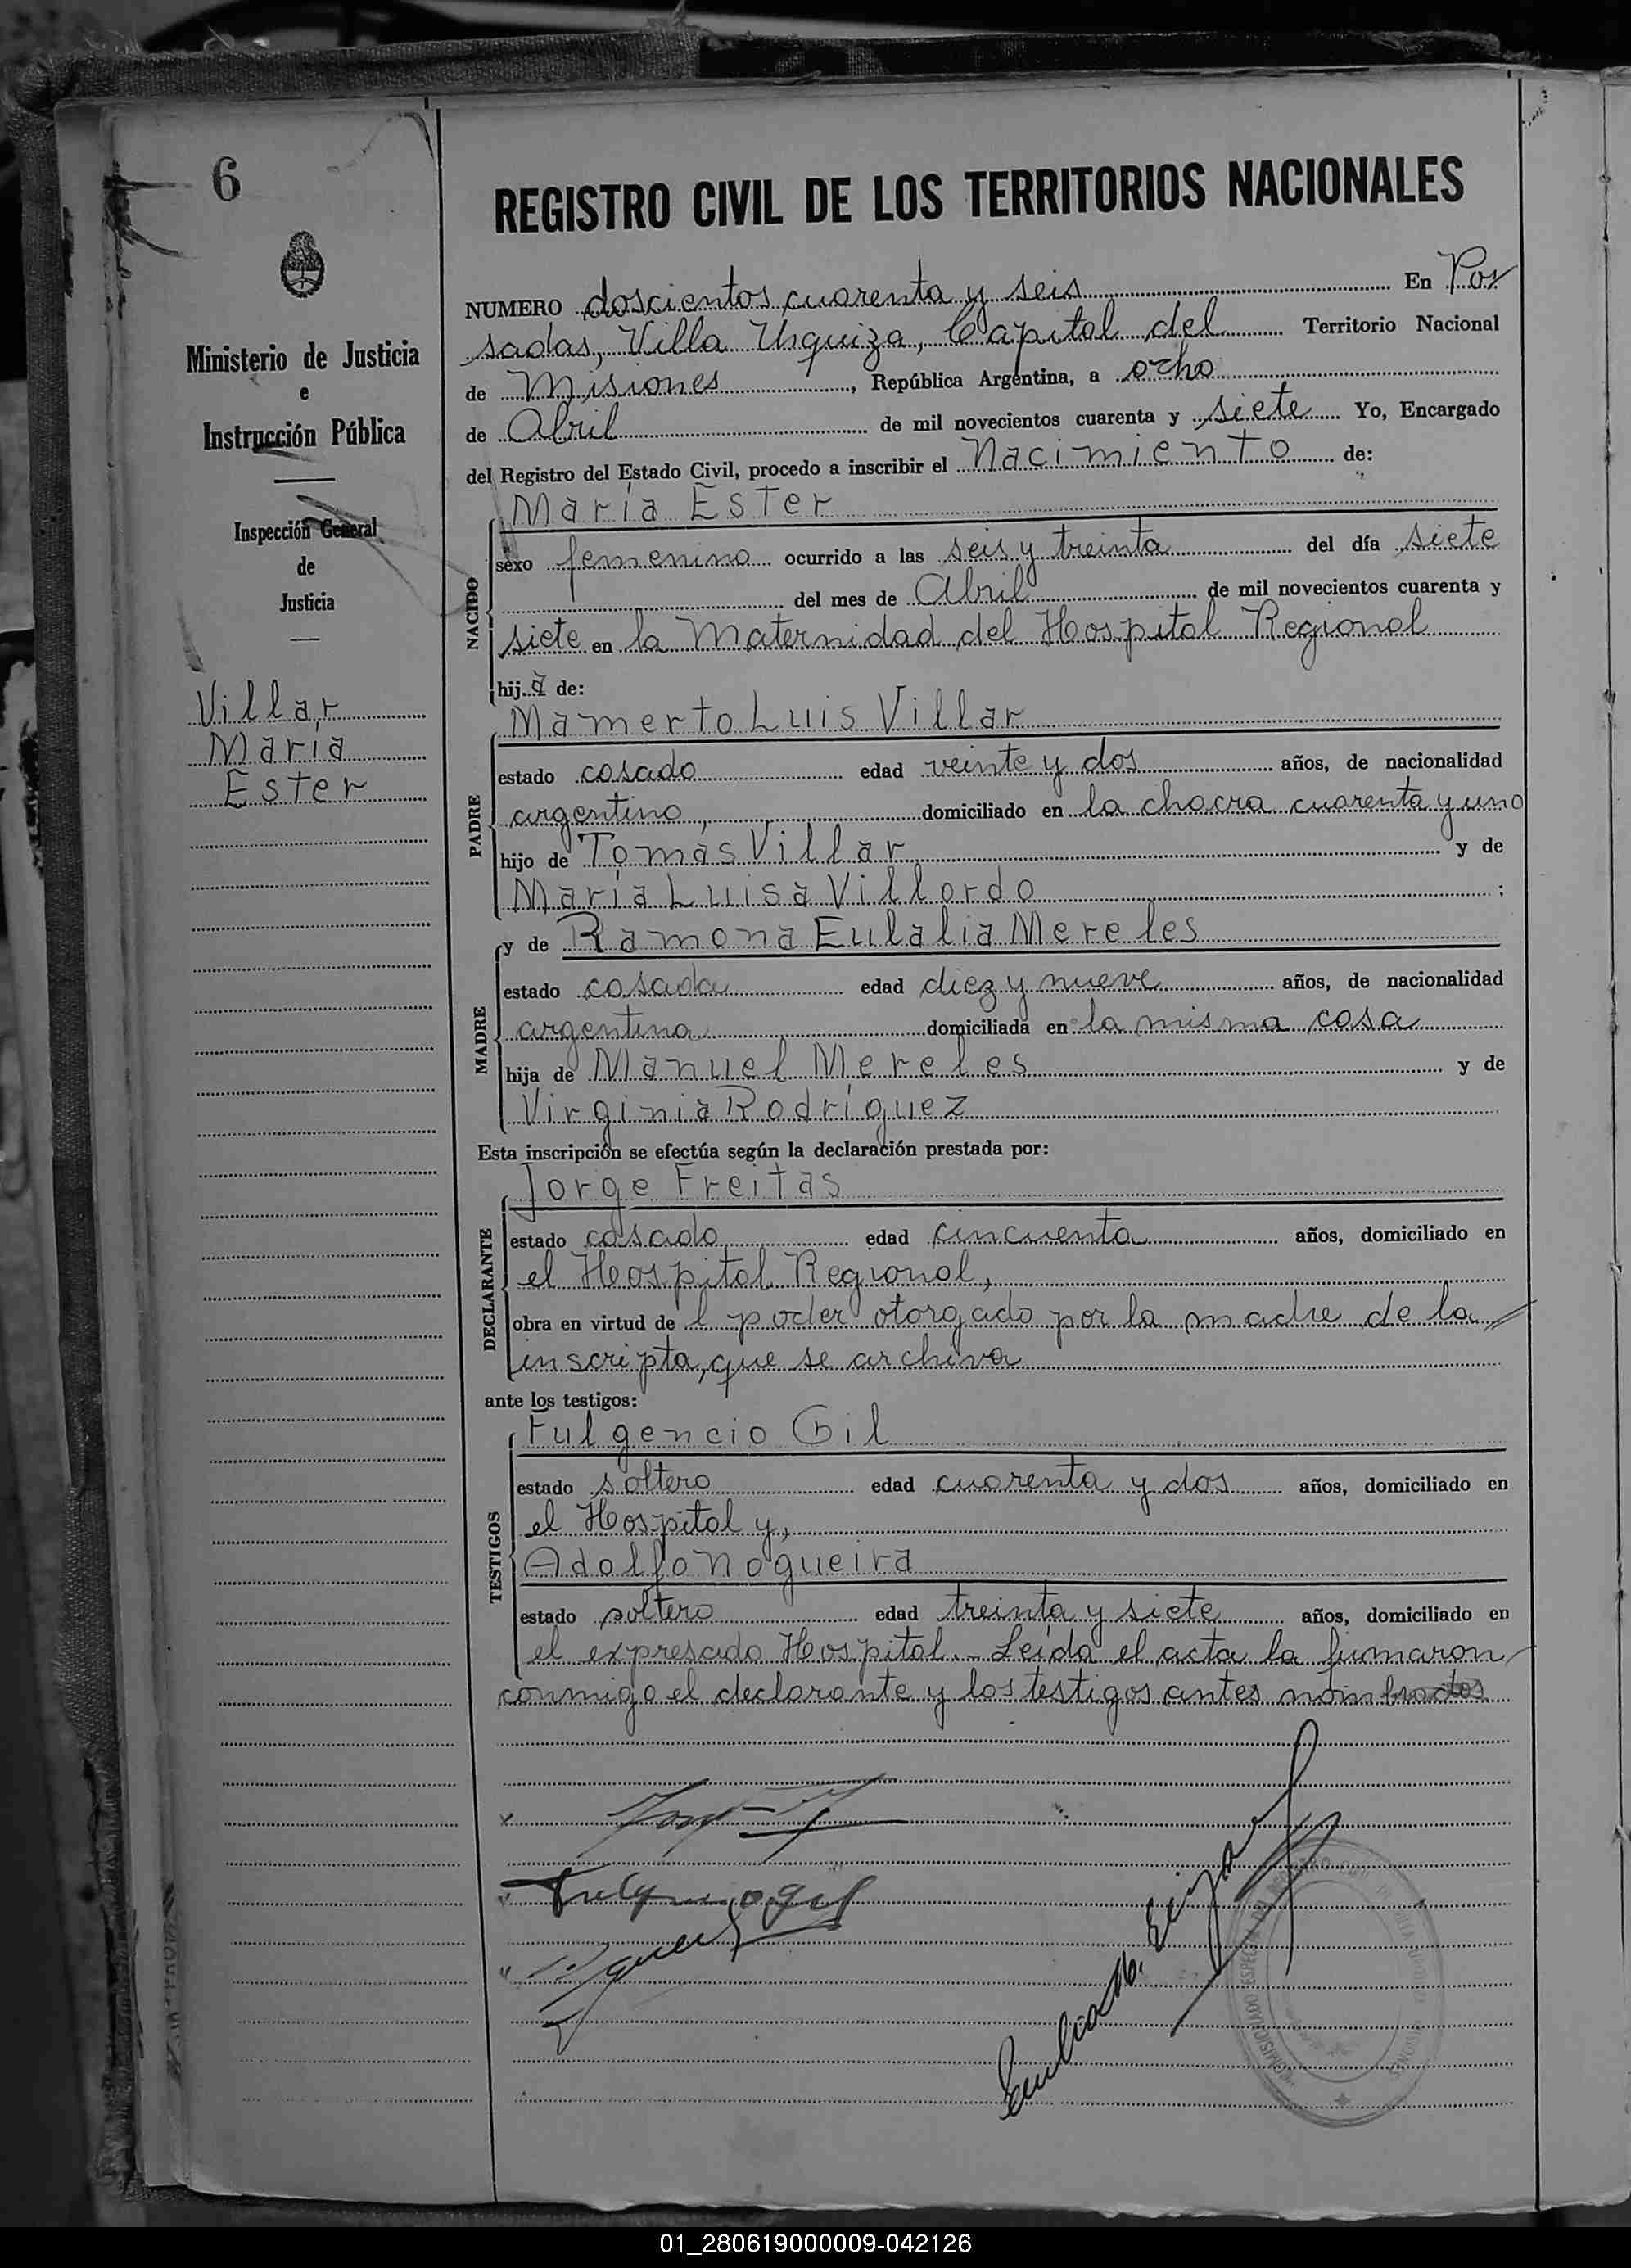 6
Ministerio de Justicia
e
Instrucción Pública
Inspección General
de
Justicia
Villar
María
Ester
REGISTRO CIVIL DE LOS TERRITORIOS NACIONALES
NUMERO doscientos cuarenta y seis En Pos
sadas, Villa Urquiza, Capital del Territorio Nacional
de Misiones, República Argentina, a ocho
de Abril de mil novecientos cuarenta y siete Yo, Encargado
del Registro del Estado Civil, procedo a inscribir el Nacimiento de:
María Ester
NACIDO
sexo femenino ocurrido a las seis y treinta del día siete
del mes de Abril de mil novecientos cuarenta y
siete en la Maternidad del Hospital Regional
hij a de:
Mamerto Luis Villar
PADRE
estado casado edad veinte y dos años, de nacionalidad
argentino, domiciliado en la chacra cuarenta y uno
hijo de Tomás Villar y de
María Luisa Villordo ;
y de Ramona Eulalia Mereles
MADRE
estado casada edad diez y nueve años, de nacionalidad
argentina domiciliada en la misma casa
hija de Manuel Mereles y de
Virginia Rodríguez
Esta inscripción se efectúa según la declaración prestada por:
Jorge Freitas
DECLARANTE
estado casado edad cincuenta años, domiciliado en
el Hospital Regional,
obra en virtud de l poder otorgado por la madre de la
inscripta, que se archiva
ante los testigos:
Fulgencio Gil
TESTIGOS
estado soltero edad cuarenta y dos años, domiciliado en
el Hospital y,
Adolfo Nogueira
estado soltero edad treinta y siete años, domiciliado en
el expresado Hospital. - Leída el acta la firmaron
conmigo el declarante y los testigos antes nombrados
01_280619000009-042126